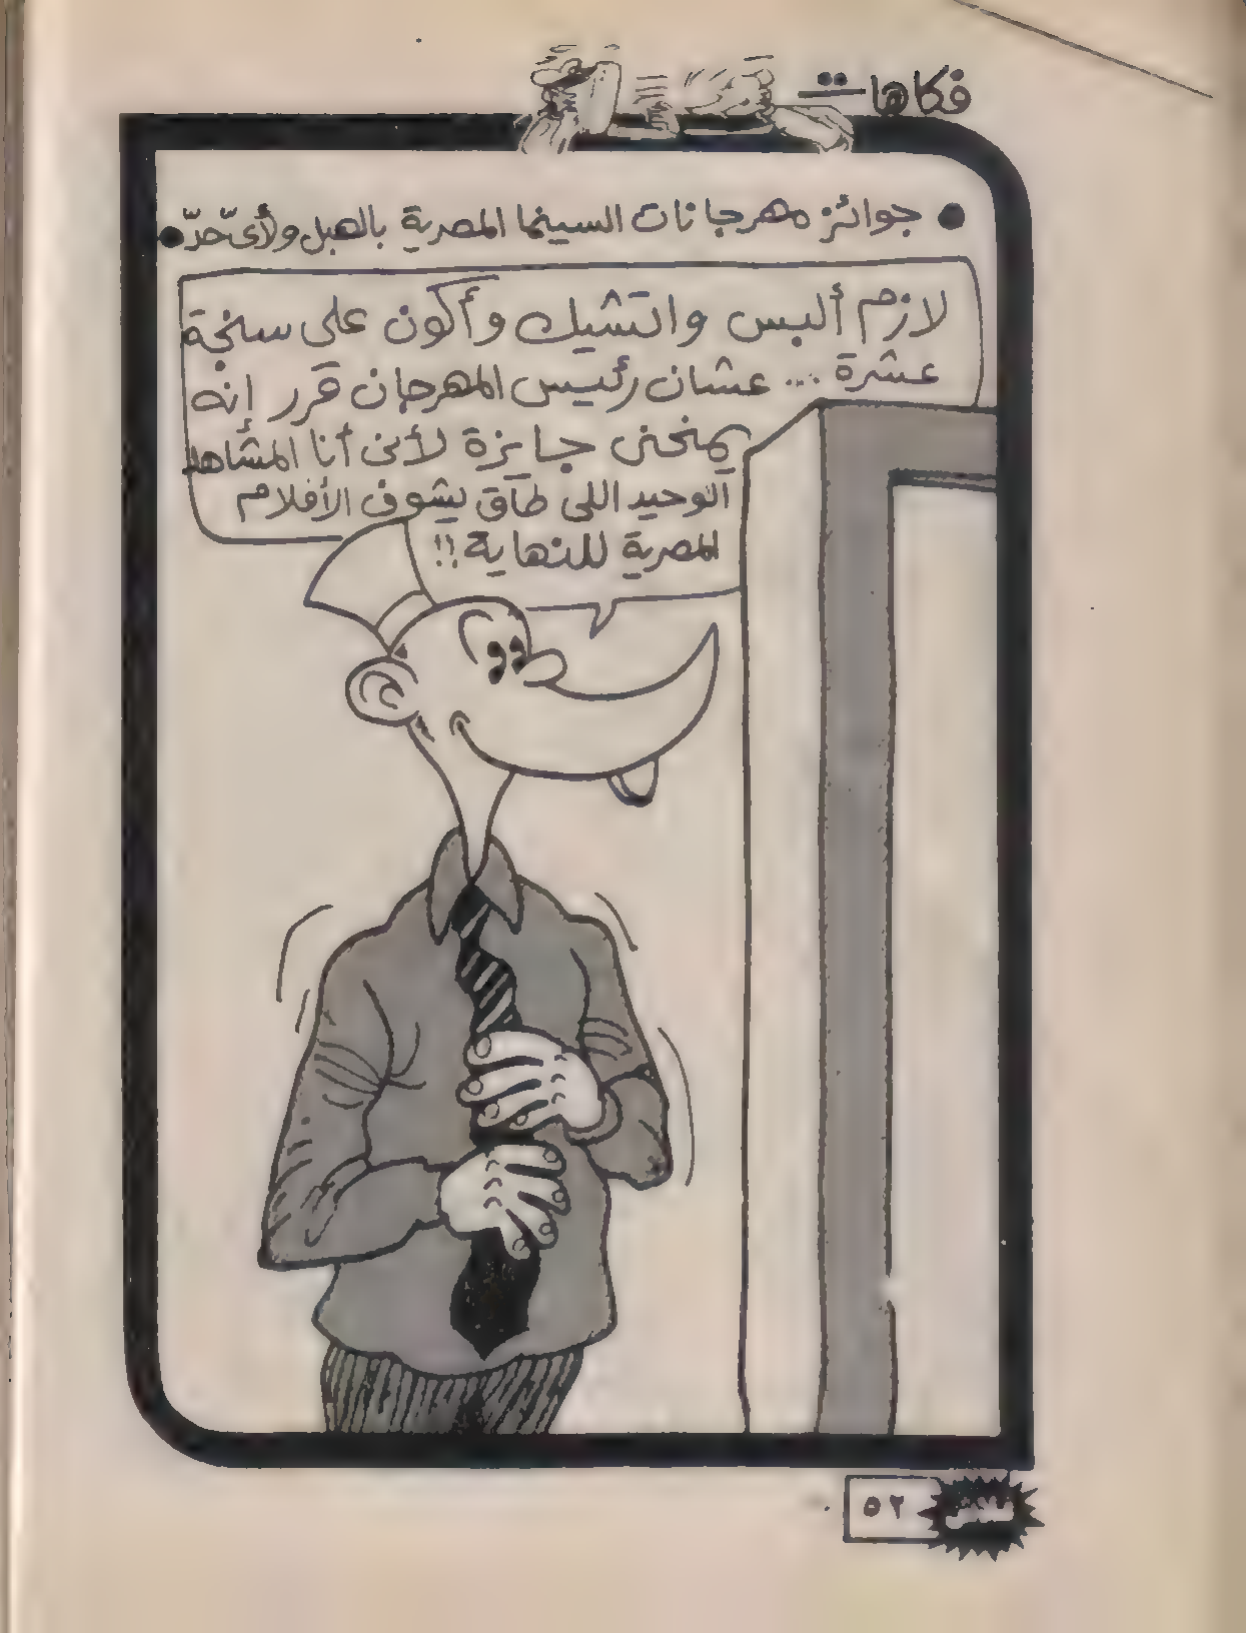 فكاهات
• جوائز مهرجانات السينما المصرية بالهبل ولأىّ حدّ •
لازم ألبس واتشيك وأكون على سنجة
عشرة ... عشان رئيس المهرجان قرر إنه
يمنحنى جايزة لأنى أنا المشاهد
الوحيد اللى طاق يشوف الأفلام
المصرية للنهاية !!
٥٢
فلاش